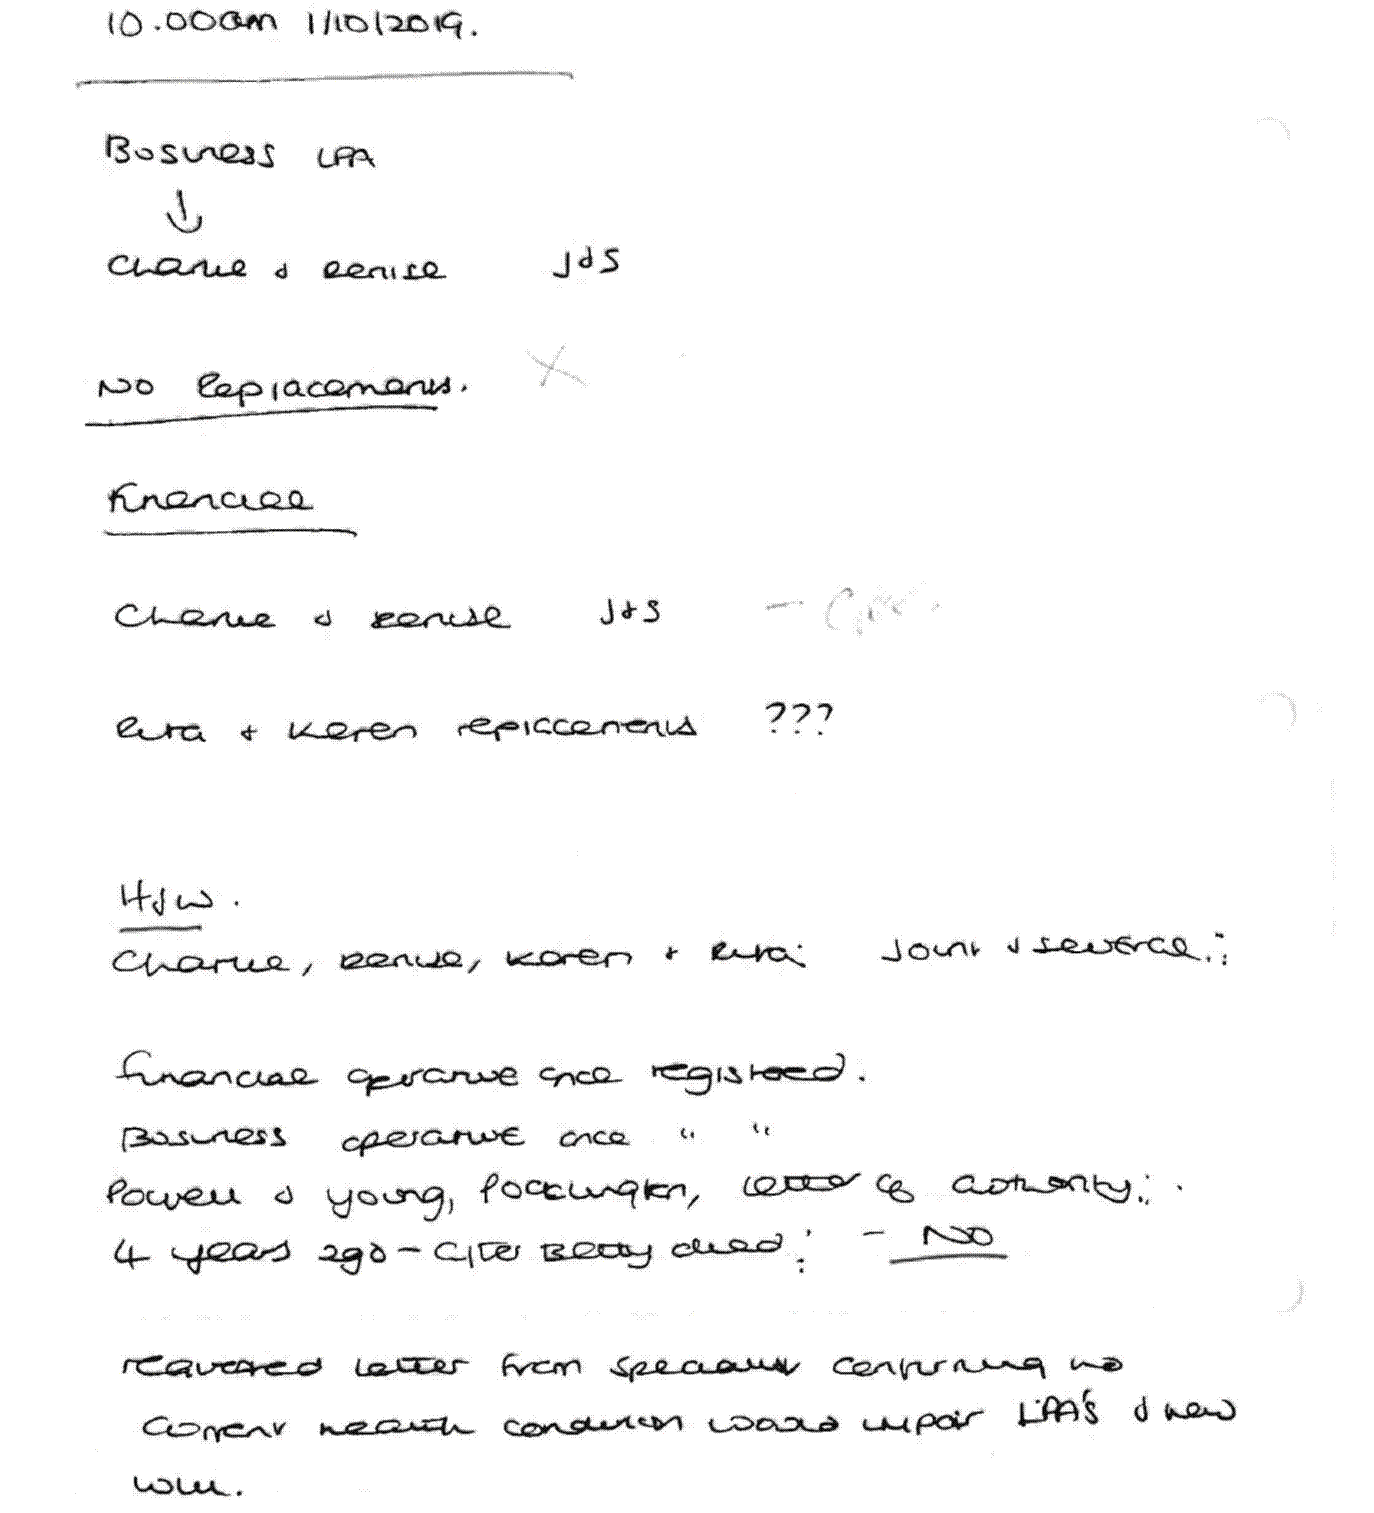 10.00am 1/10/2019.
Business LPA
↓
Charlie & Denise J&S
No Replacements. X
Financial
Charlie & Denise J&S -
Rita & Karen replacements ???
H&W.
Charlie, Denise, Karen & Rita: Joint & several:
Financial operative once registered.
Business operative once " "
Powell & Young, Pocklington, letter of authority:
4 years ago - after Betty died: - NO
required letter from specialist confirming no
current health condition would impair LPA's & new
will.